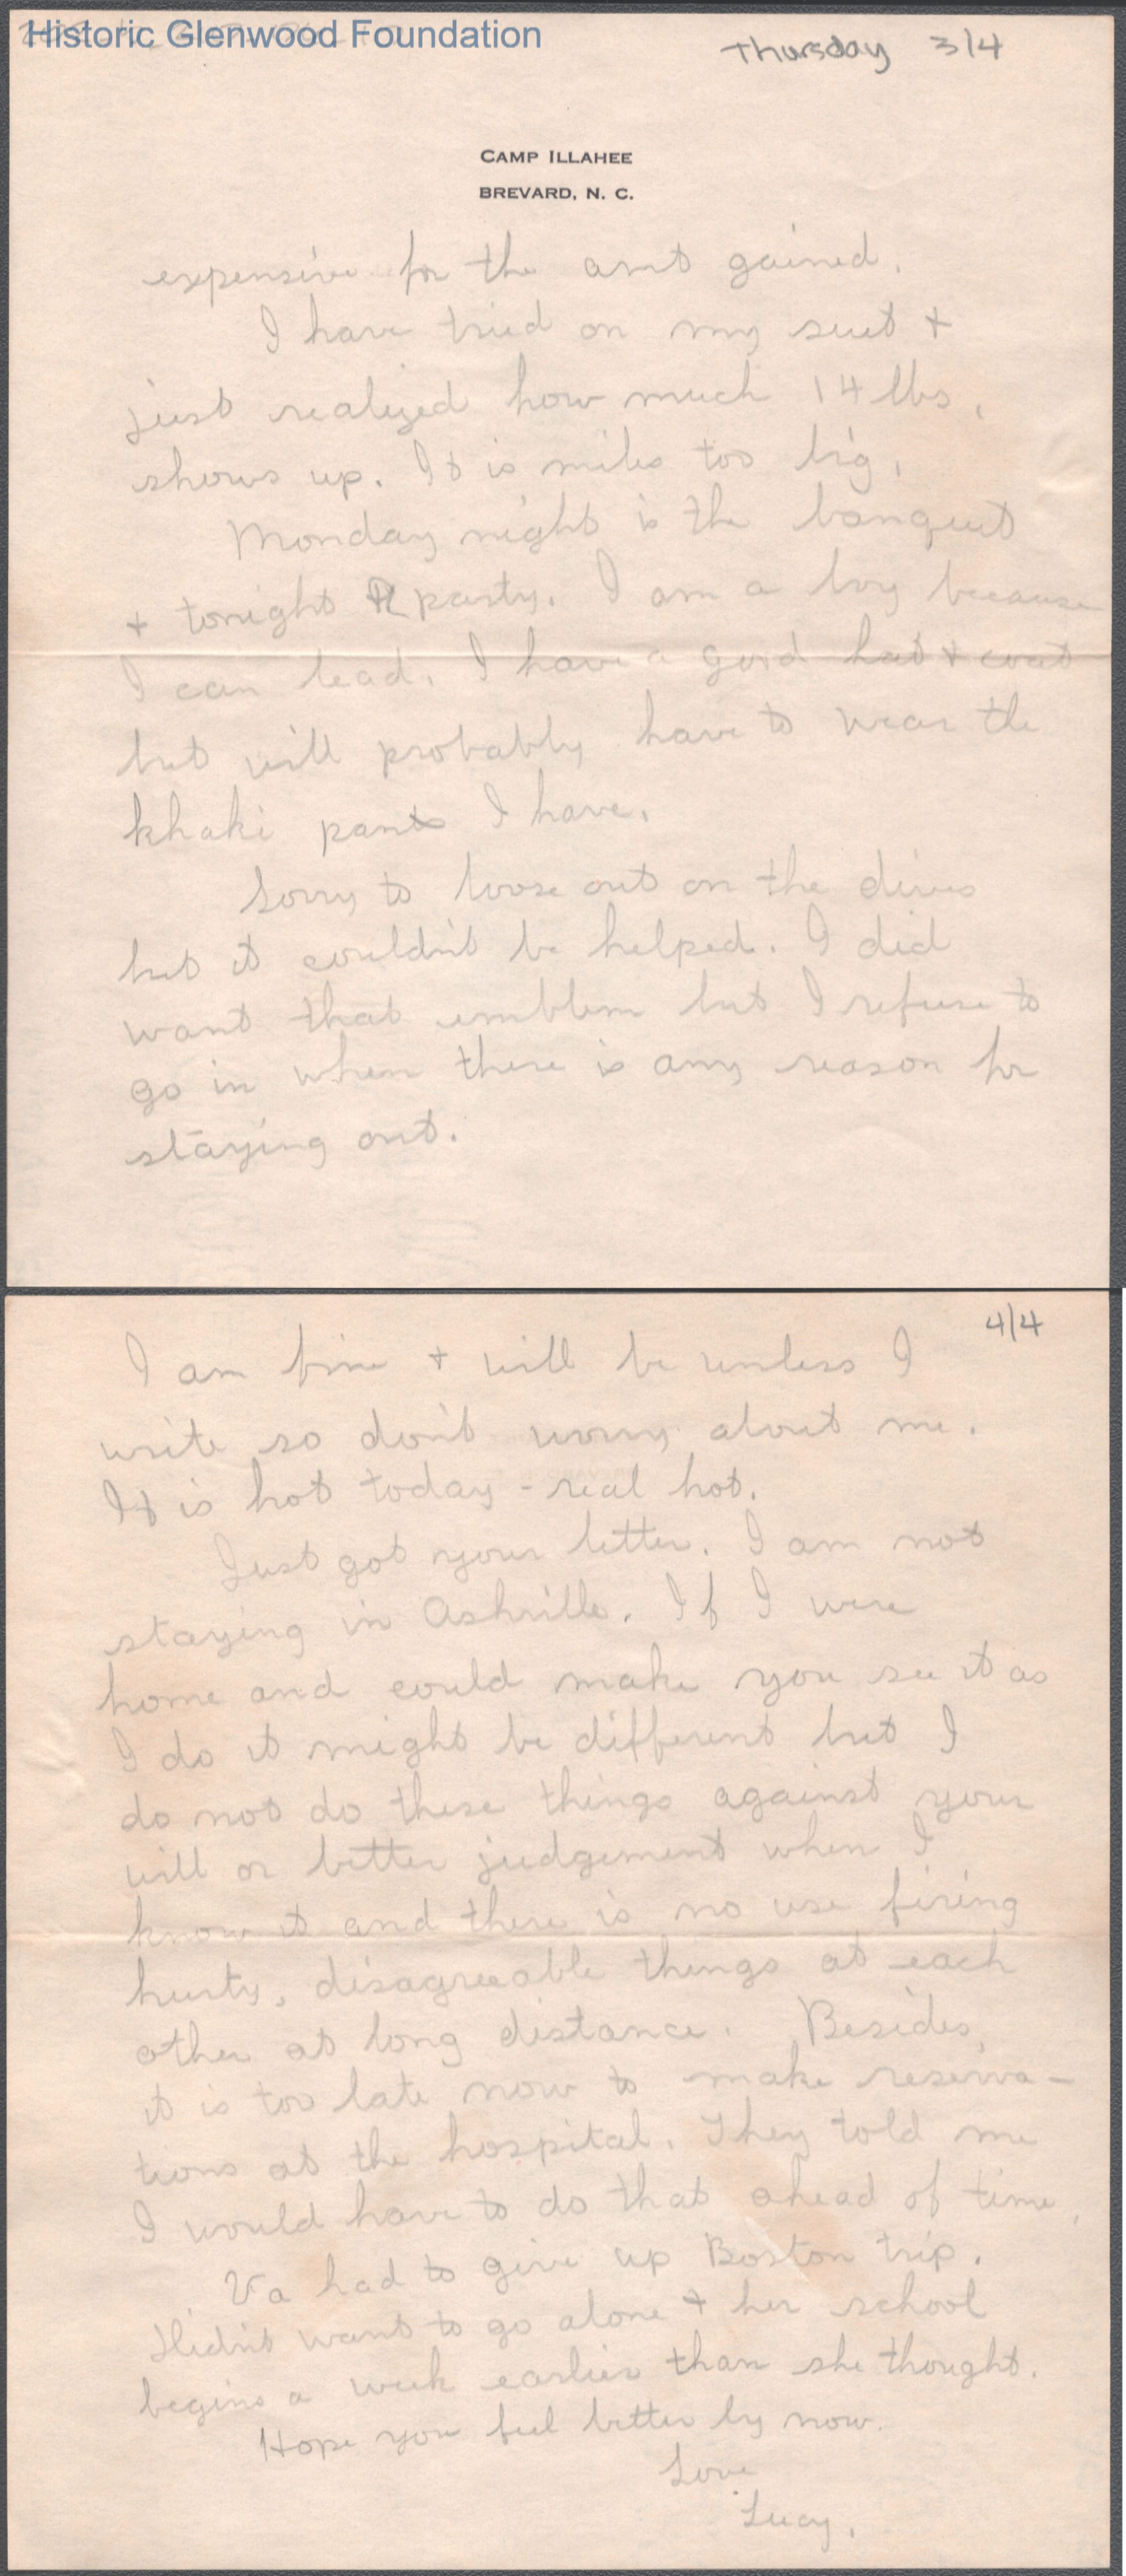 Historic Glenwood Foundation
Thursday 3/4
CAMP ILLAHEE
BREVARD, N. C.
expensive for the amt gained.
I have tried on my suit +
just realized how much 14 lbs.
shows up. It is miles too big.
Monday night is the banquet
+ tonight R party. I am a boy because
I can lead. I have a good hat + coat
but will probably have to wear the
khaki pants I have.
Sorry to loose out on the dives
but it couldn't be helped. I did
want that emblem but I refuse to
go in when there is any reason for
staying out.
4/4
I am fine + will be unless I
write so don't worry about me.
It is hot today - real hot.
Just got your letter. I am not
staying in Ashville. If I were
home and could make you see it as
I do it might be different but I
do not do these things against your
will or better judgement when I
know it and there is no use firing
hurty, disagreeable things at each
other at long distance. Besides,
it is too late now to make reserva-
tions at the hospital. They told me
I would have to do that ahead of time.
Va had to give up Boston trip.
Didn't want to go alone + her school
begins a week earlier than she thought.
Hope you feel better by now.
Love
Lucy.